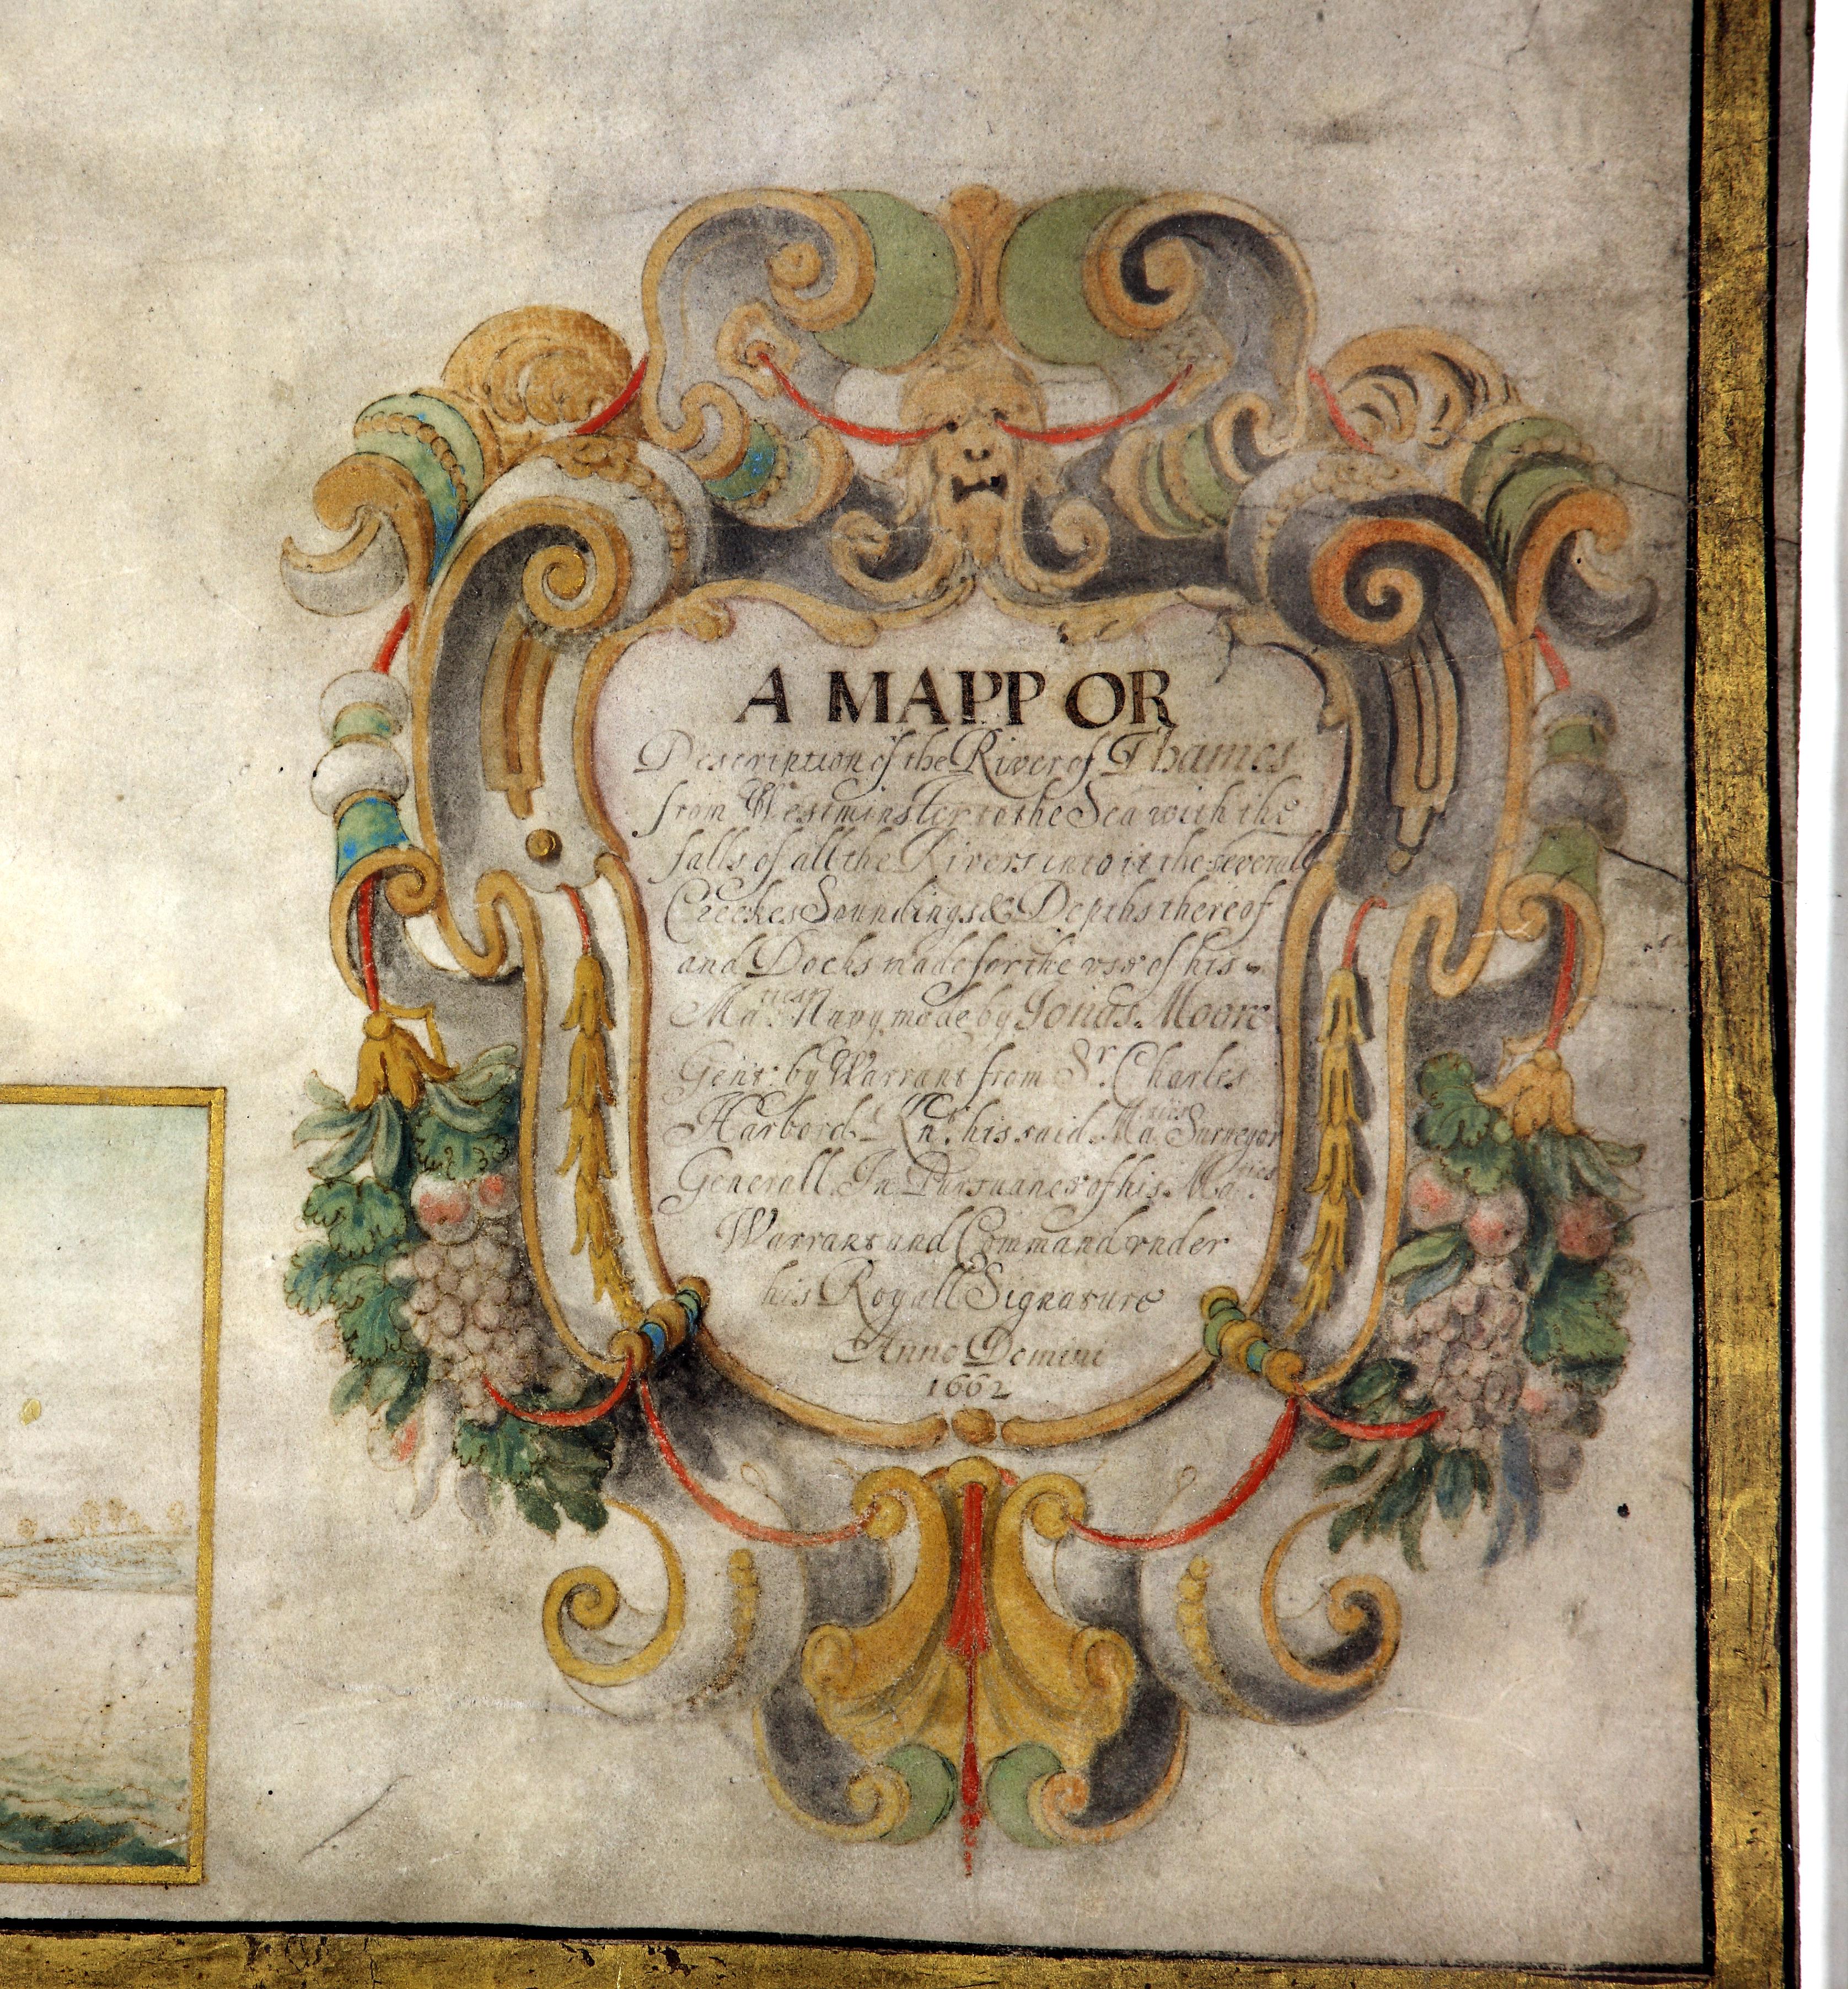 A MAPP OR
Description of the River of Thames
from Westminster to the Sea with the
falls of all the Rivers into it the severall
Creekes Soundings & Depths thereof
and Docks made for the vse of his
Ma.ties Navy, made by Jonas Moore
Gent: by Warrant from Sr. Charles
Harbord Knt. his said Ma.ties Surveyor
Generall In Pursuance of his Ma.ties
Warrant and Command vnder
his Royall Signature
Anno Domini
1662